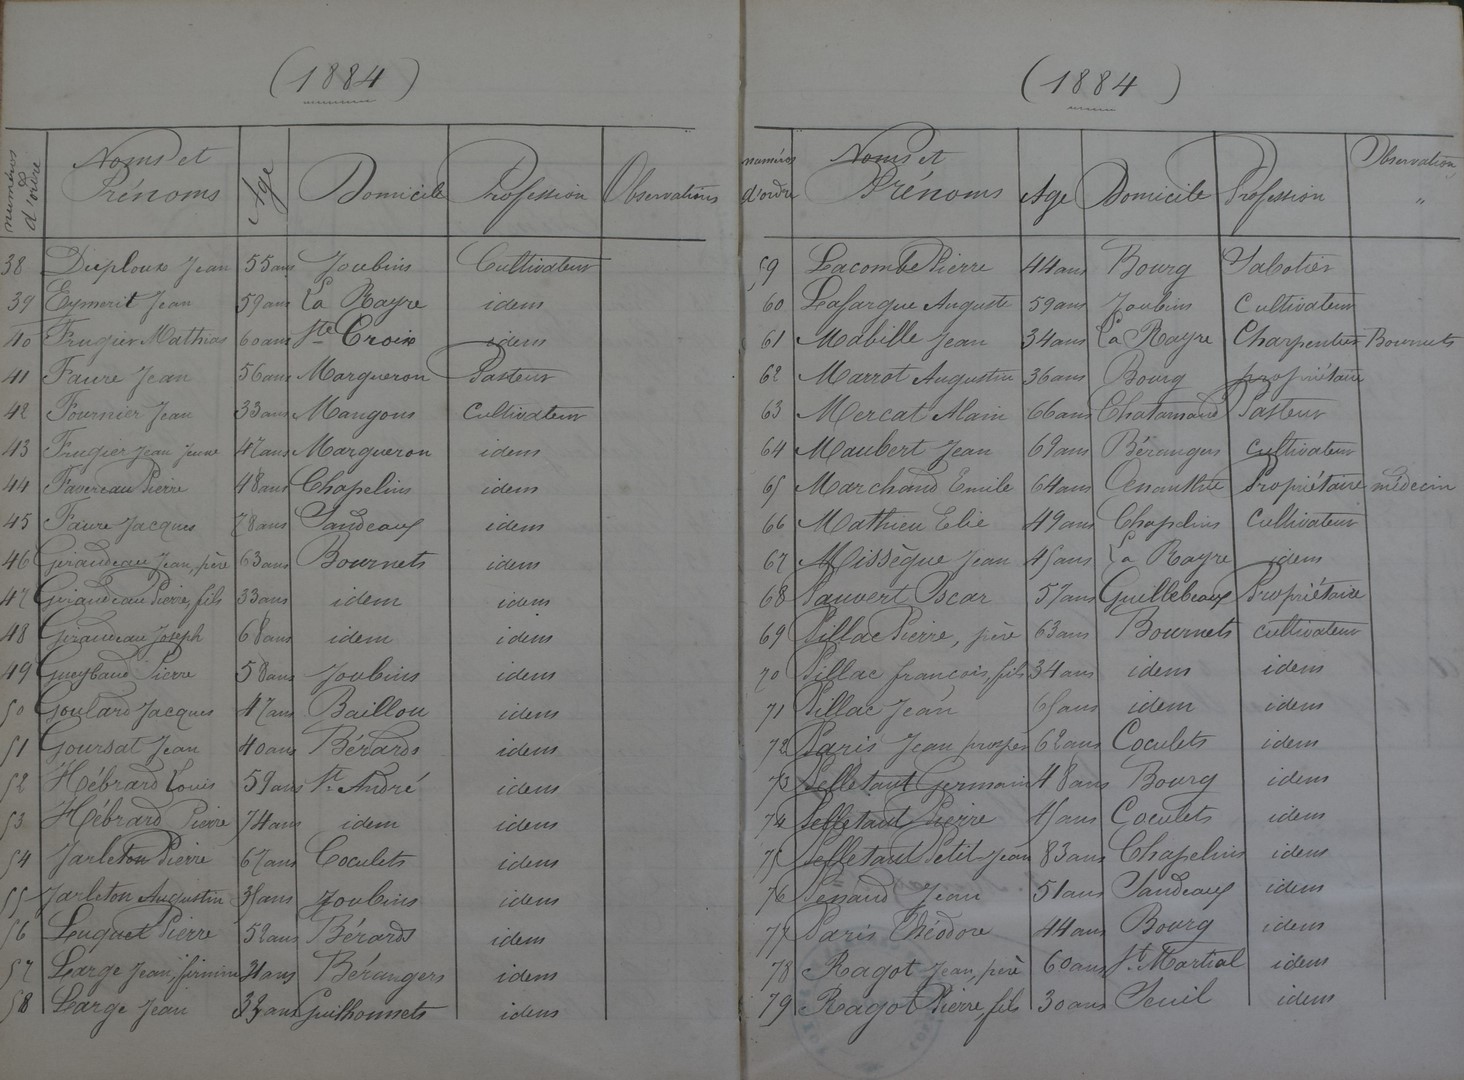 (1884)
numéros d'ordre Noms et Prénoms Age Domicile Profession Observations
38 Duploux Jean 55 ans Joubins Cultivateur
39 Eymerit Jean 59 ans La Rayre idem
40 Frugier Mathias 60 ans Ste Croix idem
41 Faure Jean 56 ans Margueron Pasteur
42 Fournier Jean 33 ans Mangons Cultivateur
43 Frugier Jean jeune 47 ans Margueron idem
44 Favereau Pierre 48 ans Chapelins idem
45 Faure Jacques 78 ans Sandeaux idem
46 Giraudeau Jean, père 63 ans Bournets idem
47 Giraudeau Pierre, fils 33 ans idem idem
48 Giraudeau Joseph 68 ans idem idem
49 Pierre 58 ans Joubins idem
50 Goulard Jacques 47 ans Baillou idem
51 Goursat Jean 40 ans Bérards idem
52 Hébrard Louis 59 ans St André idem
53 Hébrard Pierre 74 ans idem idem
54 Jarleton Pierre 67 ans Coculets idem
55 Jarleton Augustin ans Joubins idem
56 Luquet Pierre 52 ans Bérards idem
57 Large Jean, firmin ans Bérangers idem
58 Large Jean ans Guilhonnets idem
(1884)
numéros d'ordre Noms et Prénoms Age Domicile Profession Observation "
59 Lacombe Pierre 44 ans Bourg Sabotier
60 Lafargue Auguste 59 ans Joubins Cultivateur
61 Mabille Jean 34 ans La Rayre Charpentier Bournets
62 Marrot Augustin 36 ans Bourg propriétaire
63 Mercat Alain 66 ans Pasteur
64 Maubert Jean 69 ans Bérangers cultivateur
65 Marchand Emile 64 ans Propriétaire médecin
66 Mathieu Elie 49 ans Chapelins Cultivateur
67 Missègue Jean 45 ans La Rayre idem
68 Pauvert Oscar 57 ans Guillebeaux Propriétaire
69 Pillac Pierre, père 63 ans Bournets cultivateur
70 Pillac françois, fils 34 ans idem idem
71 Pillac Jean 65 ans idem idem
72 Paris Jean prosper 62 ans Coculets idem
73 Pelletant Germain 48 ans Bourg idem
74 Pelletant Pierre 45 ans Coculets idem
75 Pelletant Petit-Jean 83 ans Chapelins idem
76 Penaud Jean 51 ans Sandeaux idem
77 Paris Théodore 44 ans Bourg idem
78 Ragot Jean, père 60 ans St Martial idem
79 Ragot Pierre, fils 30 ans Seuil idem